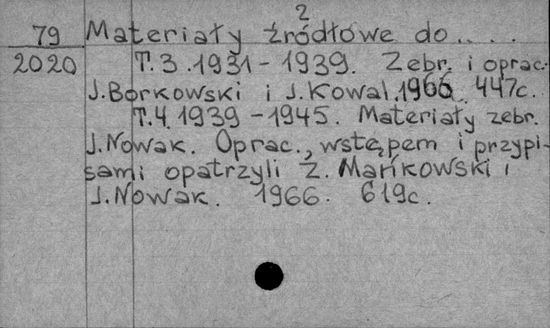 2
79 Materiały źródłowe do....
2020 T.3.1931-1939. Zebr. i oprac.
J.Borkowski i J.Kowal.1966. 447c.
T.4.1939-1945. Materiały zebr.
J.Nowak. Oprac., wstępem i przypi-
sami opatrzyli Z. Mańkowski i
J.Nowak. 1966. 619c.